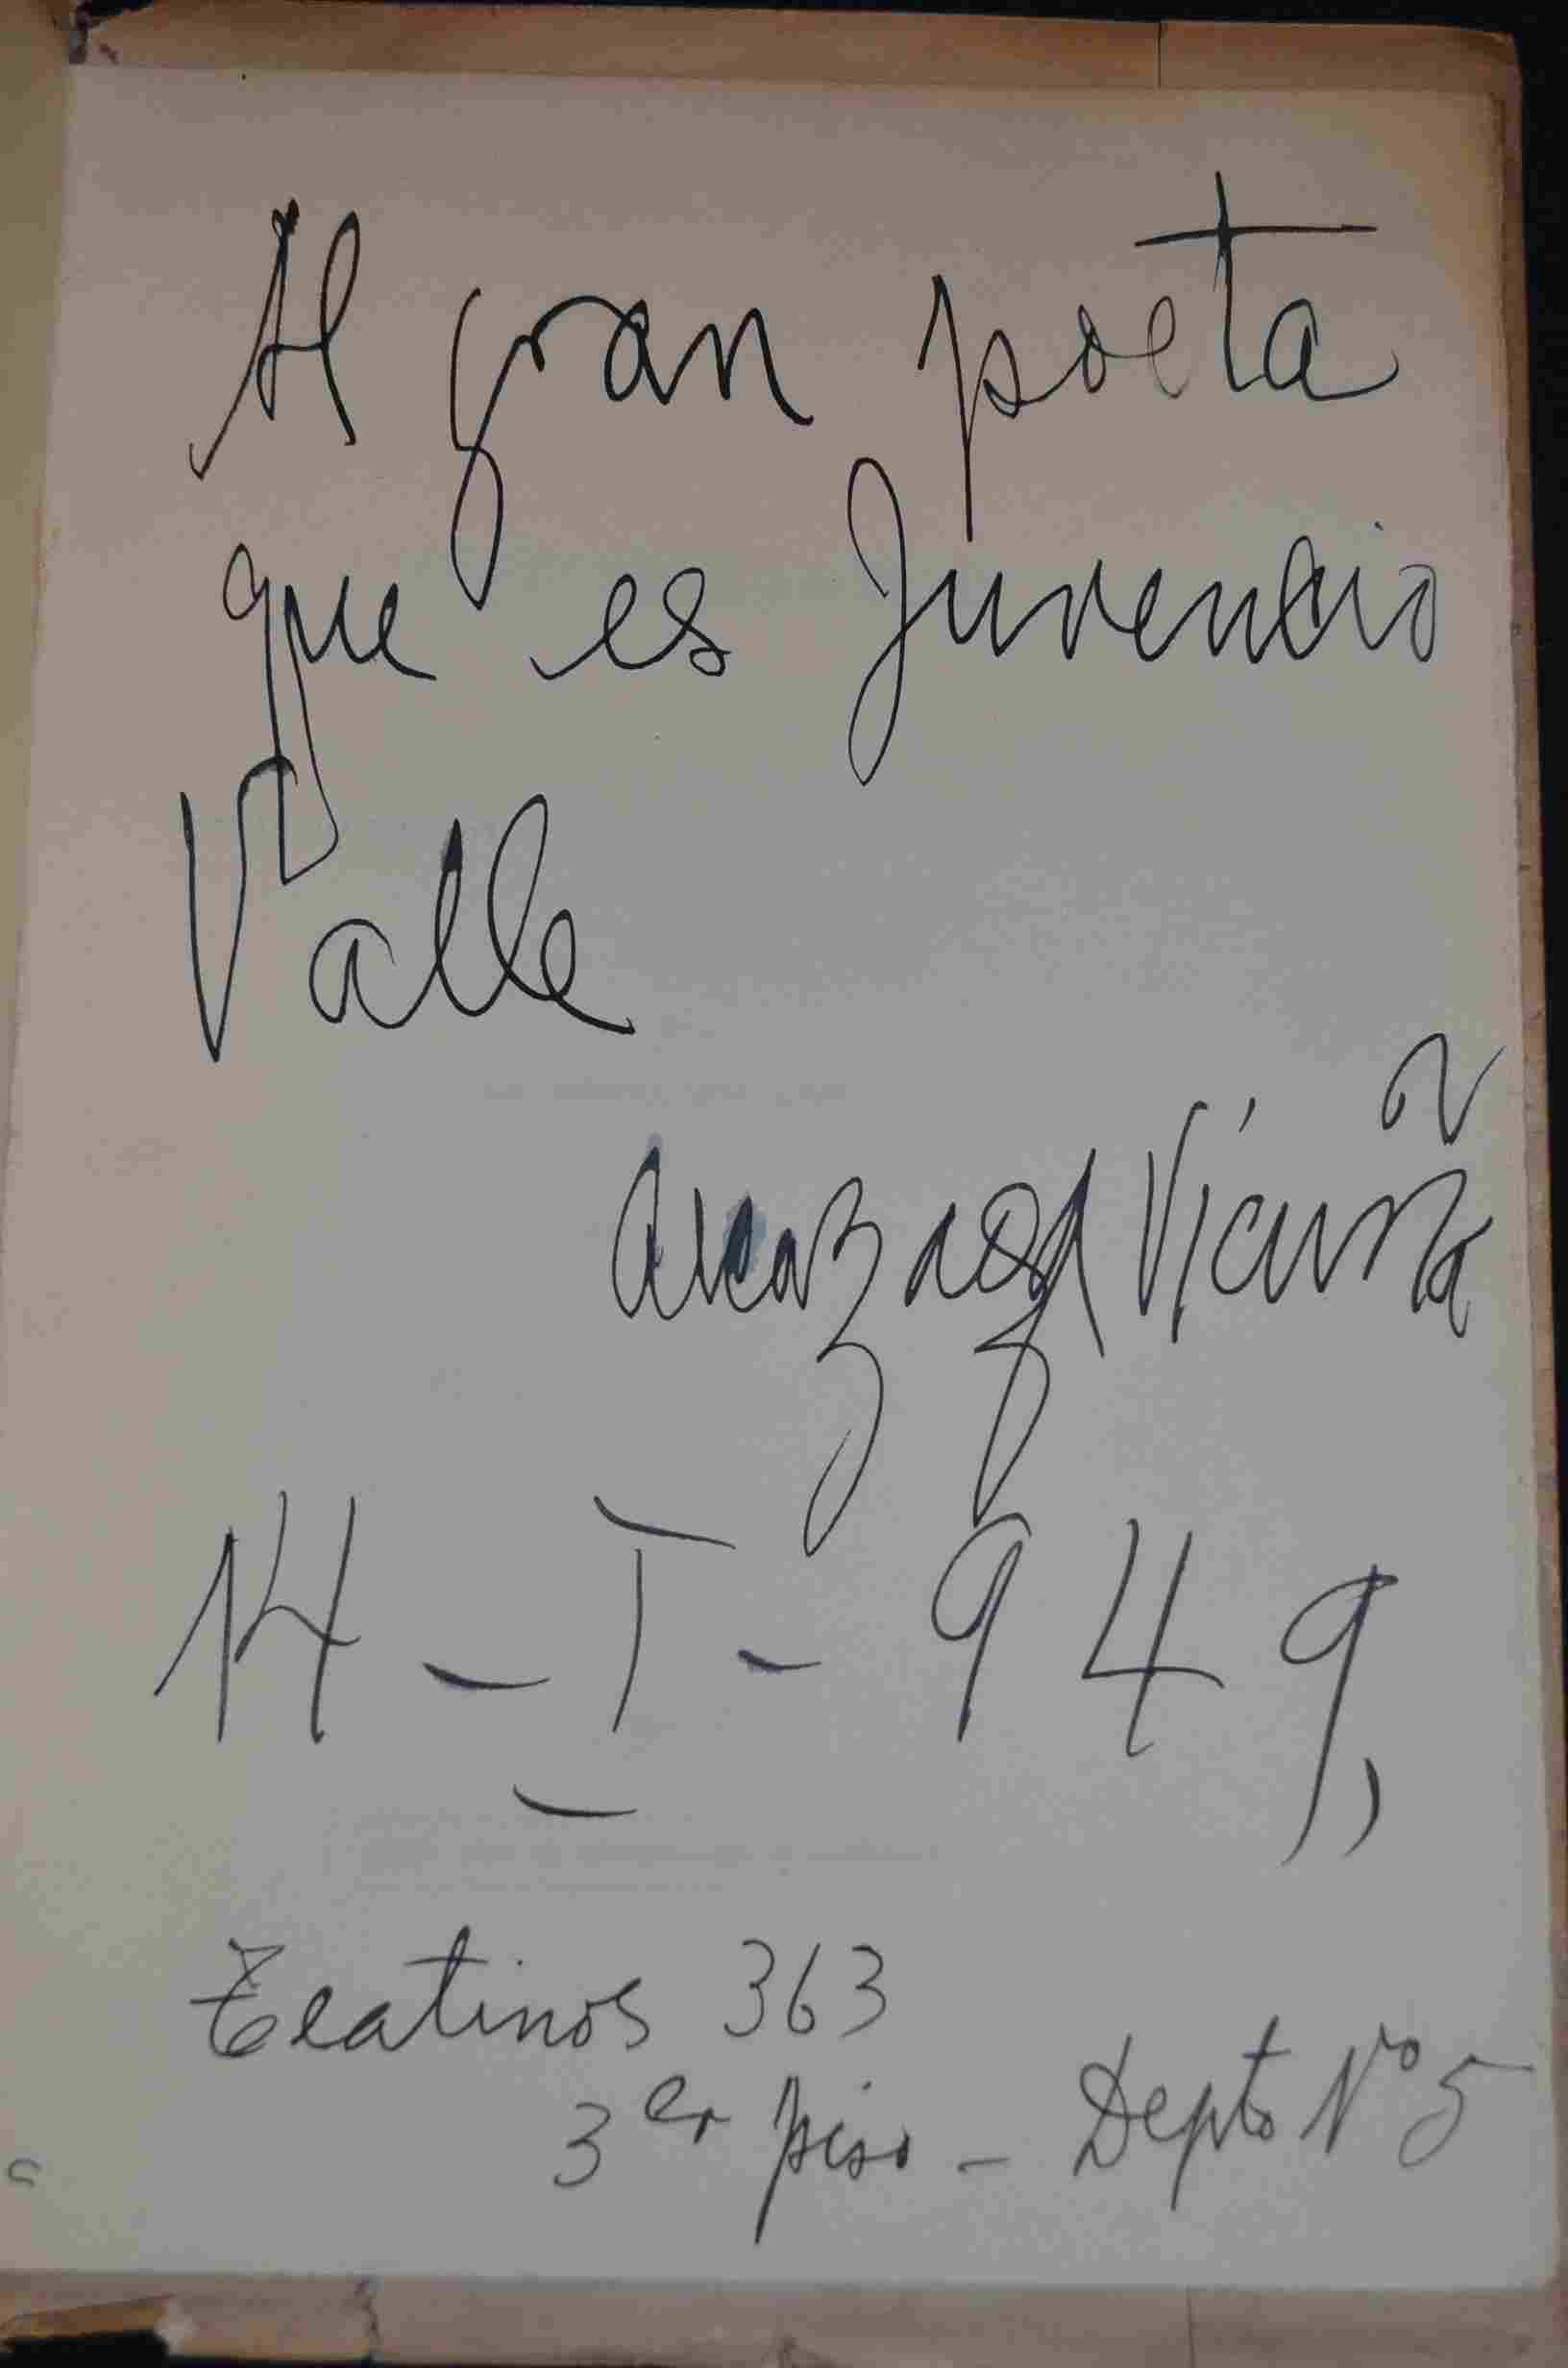 Al gran poeta
que es Juvencio
Valle
Vicuña
14-I-949,
Teatinos 363
3er piso - Depto Nº 5